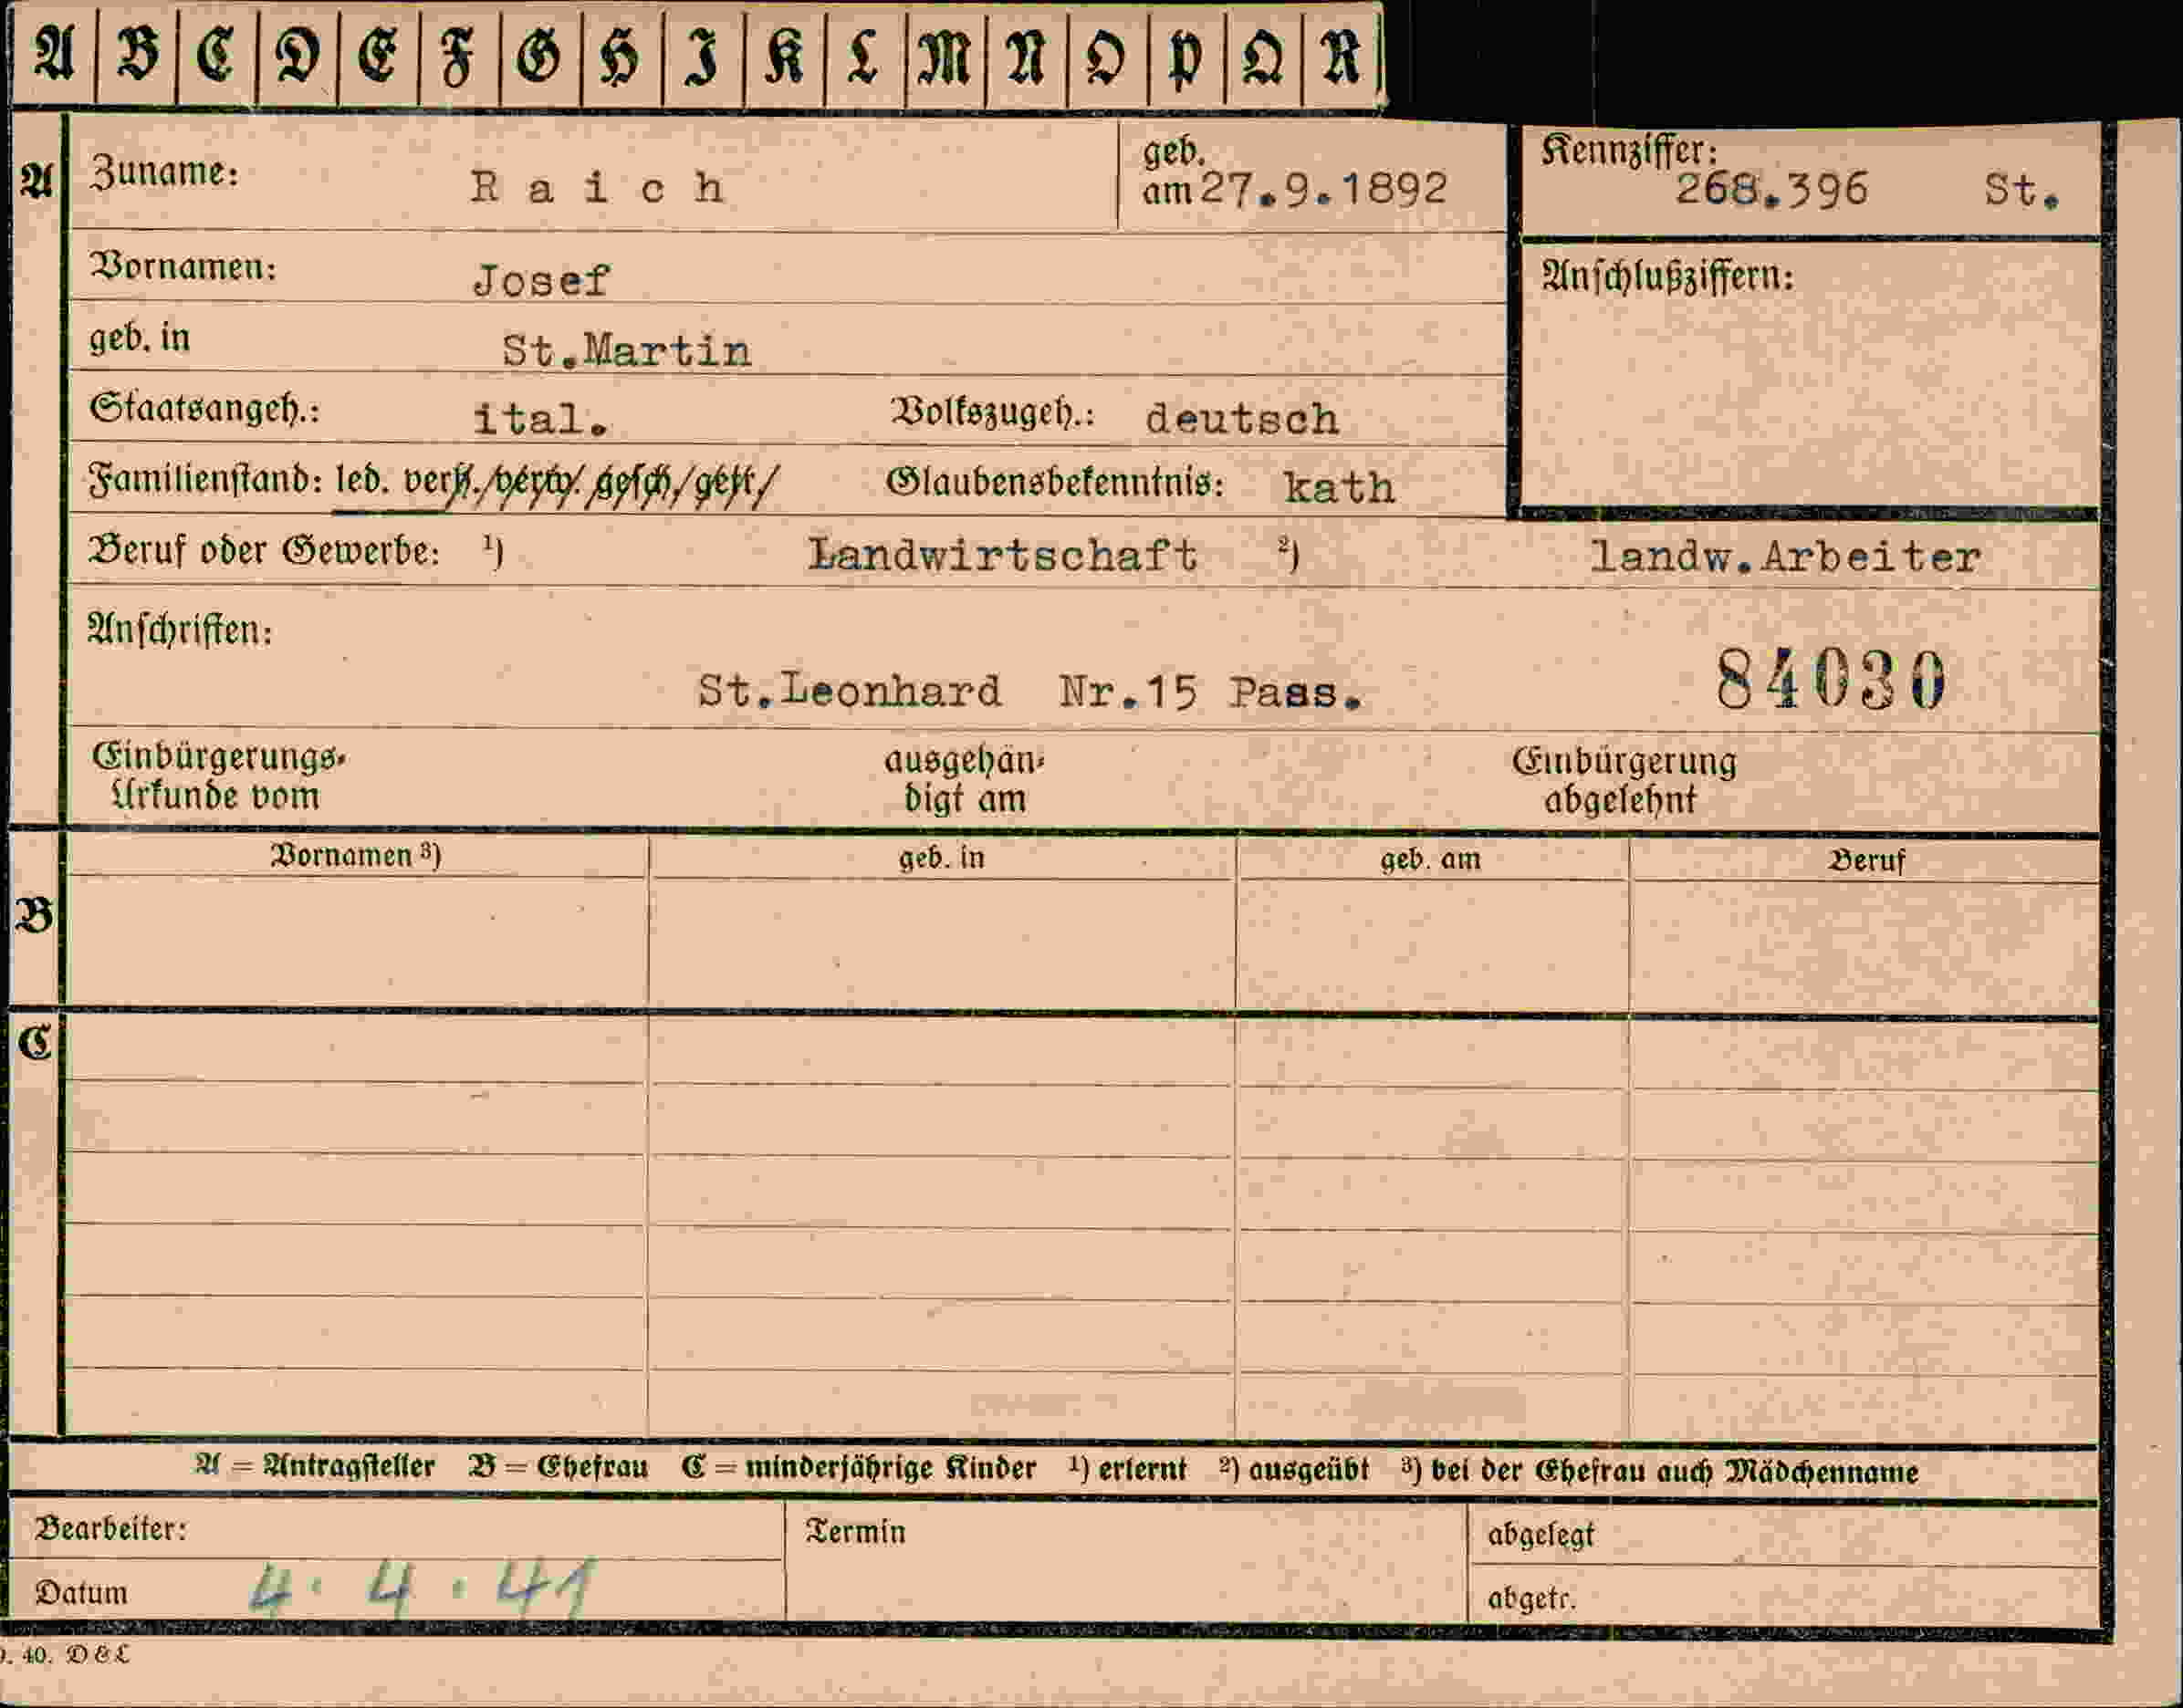 A B C D E F G H I K L M N O P Q R
A Zuname: Raich geb. am 27.9.1892 Kennziffer: 268.396 St.
Vornamen: Josef Anschlußziffern:
geb. in St.Martin
Staatsangeh.: ital. Volkszugeh.: deutsch
Familienstand: led. verh./verw./gesch./getr./ Glaubensbekenntnis: kath
Beruf oder Gewerbe: ¹) Landwirtschaft ²) landw.Arbeiter
Anschriften:
St.Leonhard Nr.15 Pass. 84030
Einbürgerungs- ausgehän- Einbürgerung
Urkunde vom digt am abgelehnt
Vornamen ³) geb. in geb. am Beruf
B
C
A = Antragsteller B = Ehefrau C = minderjährige Kinder ¹) erlernt ²) ausgeübt ³) bei der Ehefrau auch Mädchenname
Bearbeiter: Termin abgelegt
Datum 4. 4. 41 abgetr.
40. D & L